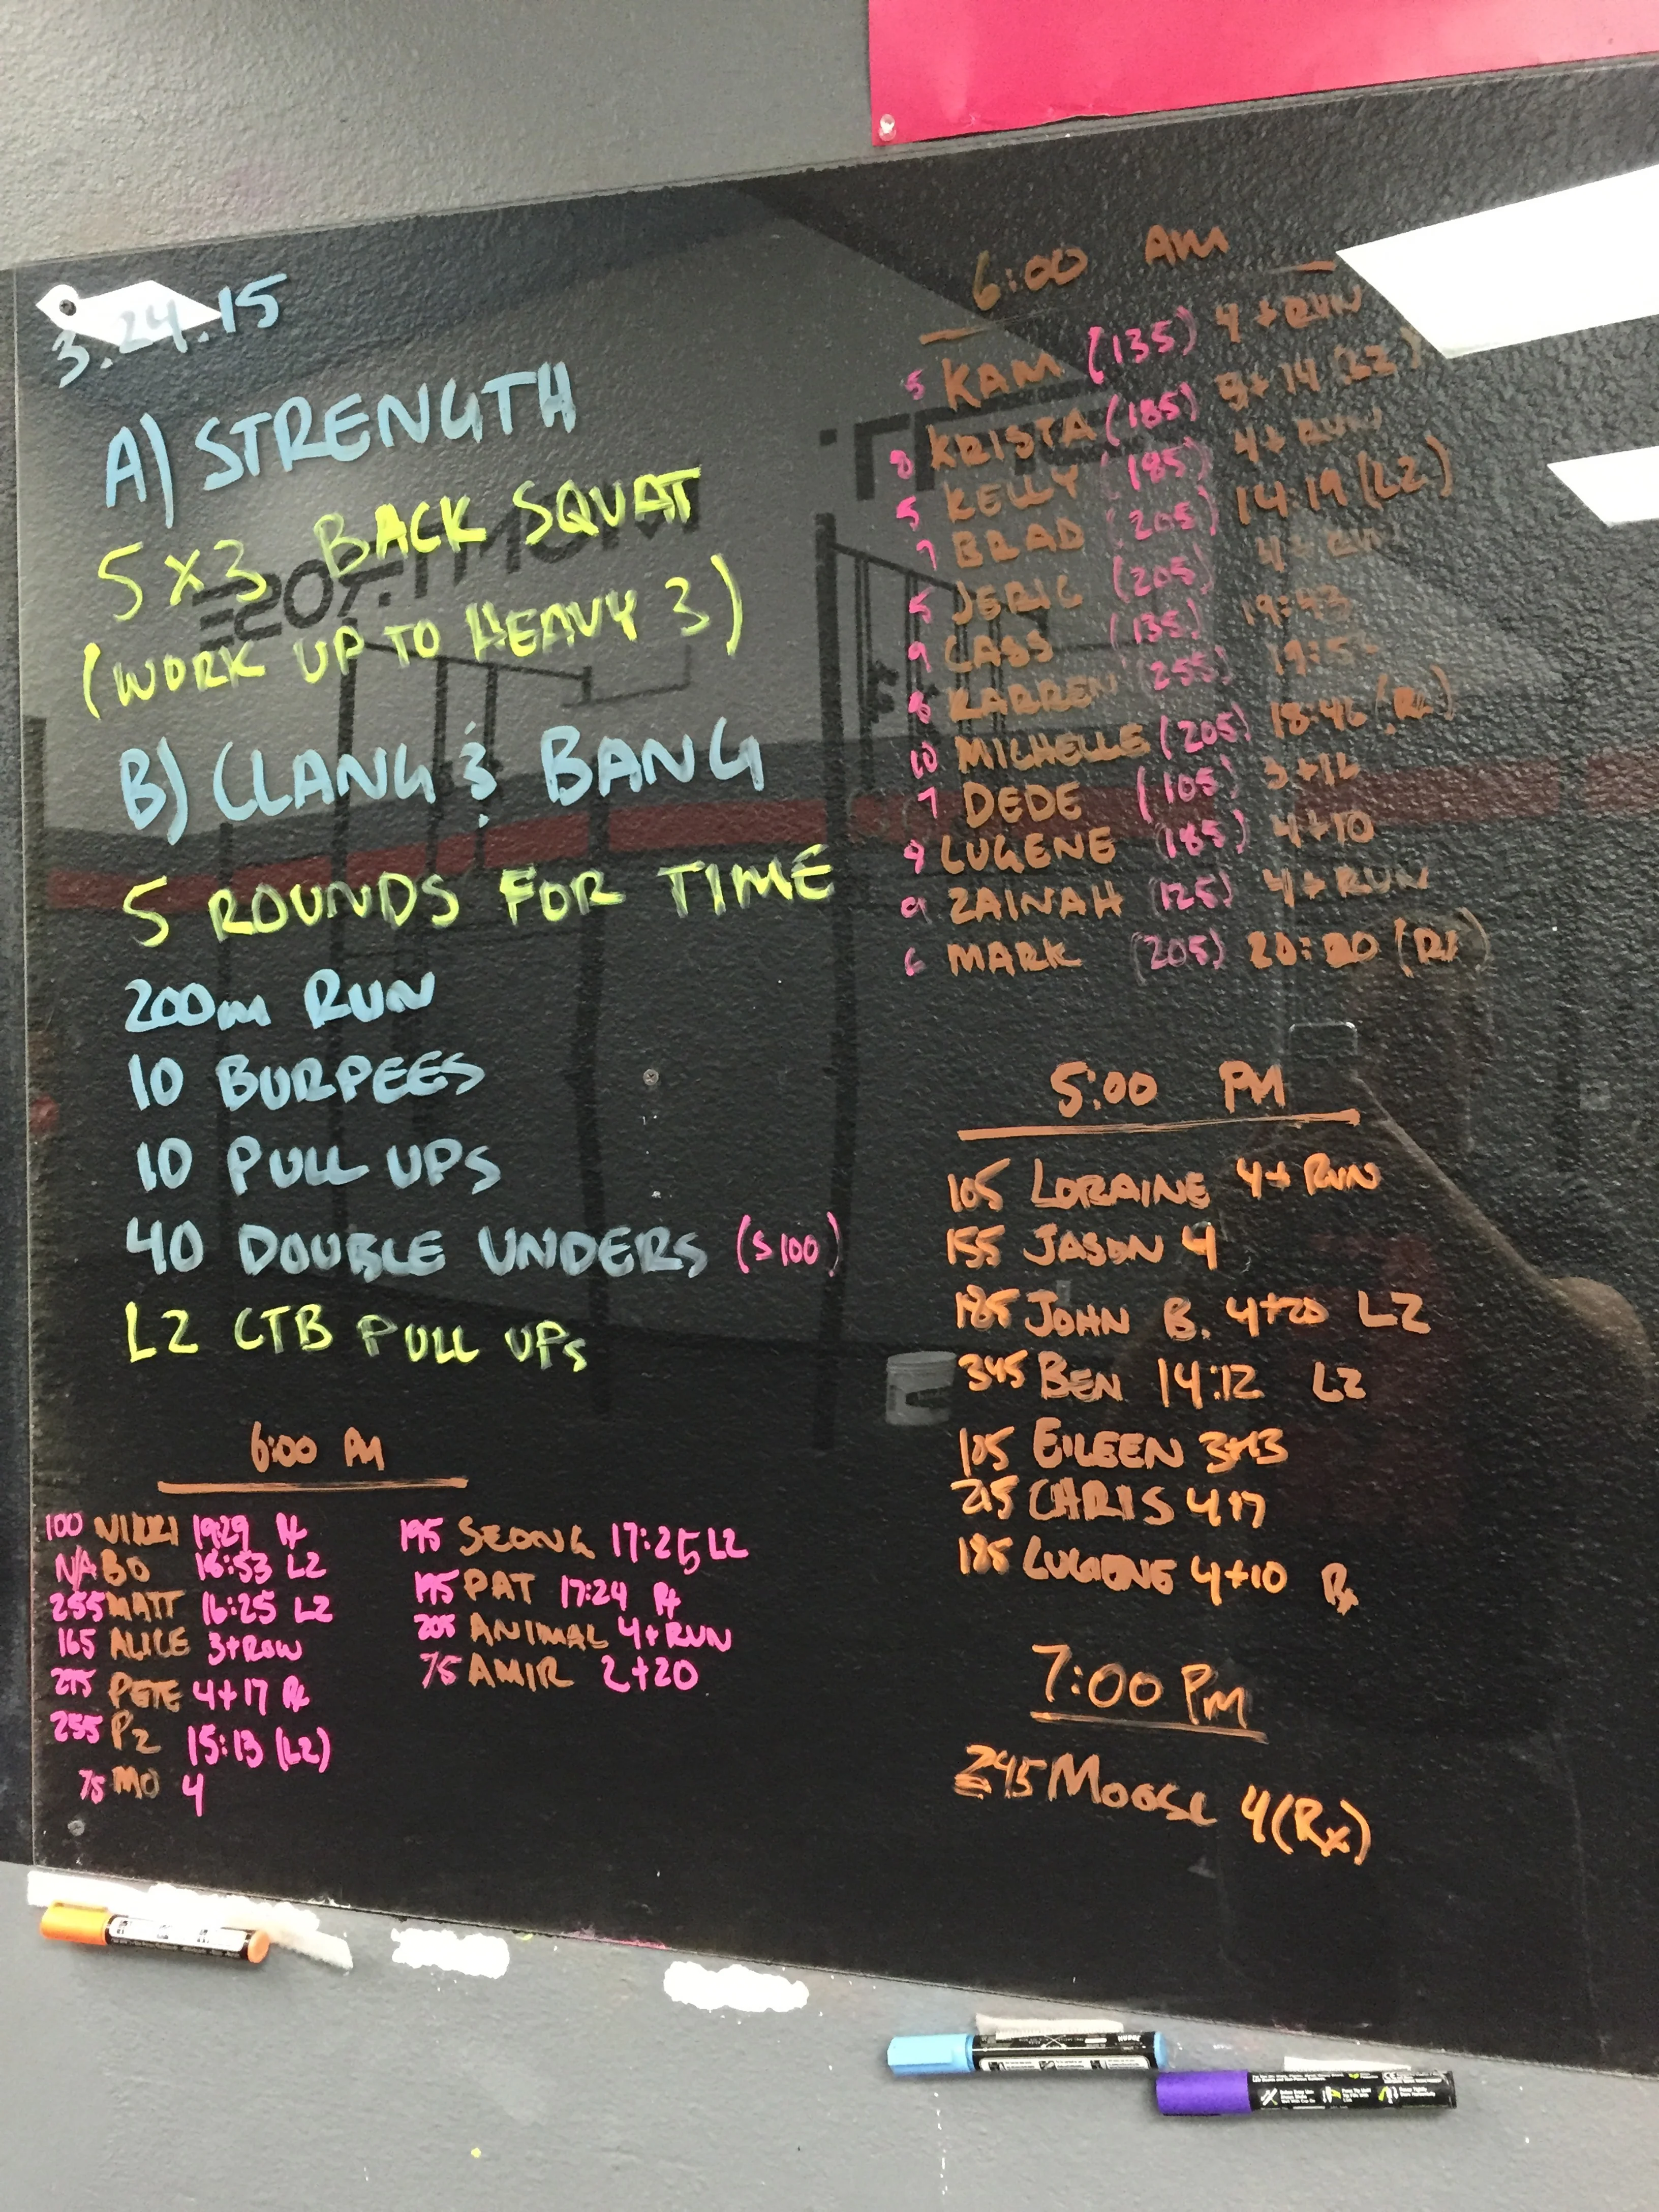 3.24.15
A) STRENGTH
5x3 BACK SQUAT
(WORK UP TO HEAVY 3)
B) CLANG & BANG
5 ROUNDS FOR TIME
200m RUN
10 BURPEES
10 PULL UPS
40 DOUBLE UNDERS (S100)
L2 CTB PULL UPS
6:00 PM
100 NIKKI 19:29 Rx
N/A BO 16:53 L2
255 MATT 16:25 L2
165 ALICE 3+ROW
275 PETE 4+17 Rx
255 PZ 15:13 (L2)
75 MO 4
195 SEONG 17:25 L2
195 PAT 17:24 Rx
205 ANIMAL 4+RUN
75 AMIR 2+20
6:00 AM
5 KAM (135) 4+RUN
8 KRISTA (185) 3+14 (L2)
5 KELLY (185) 4+RUN
7 BRAD (205) 14:19 (L2)
5 JERIC (205) 4+RUN
9 CASS (135) 19:43
8 KARREN (255)
10 MICHELLE (205) 18:46 (Rx)
7 DEDE (105) 3+12
9 LUGENE (185) 4+10
9 ZAINAH (125) 4+RUN
6 MARK (205) (Rx)
5:00 PM
105 LORAINE 4+RUN
155 JASON 4
185 JOHN B. 4+20 L2
345 BEN 14:12 L2
105 EILEEN 3+13
215 CHRIS 4+17
185 LUGENE 4+10 Rx
7:00 PM
245 MOOSE 4 (Rx)